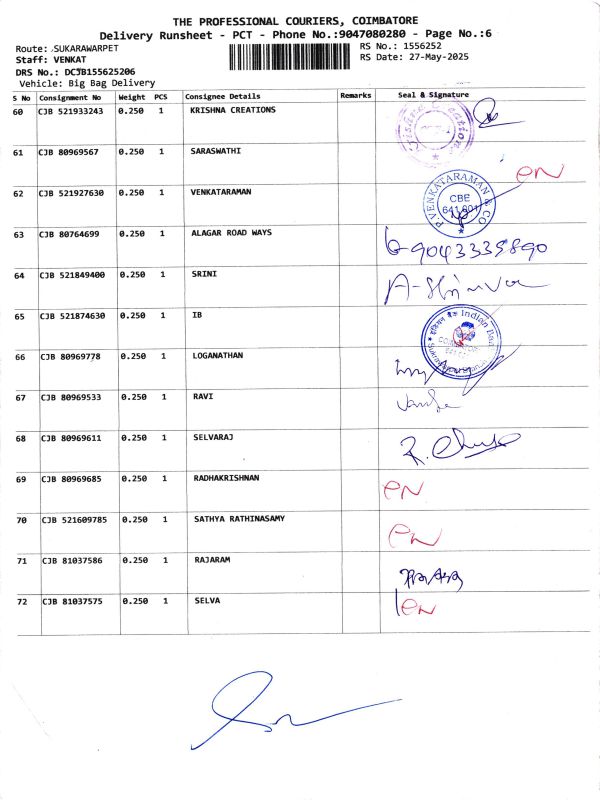 THE PROFESSIONAL COURIERS, COIMBATORE
Delivery Runsheet - PCT - Phone No.:9047080280 - Page No.:6
Route: SUKARAWARPET
RS No.: 1556252
Staff: VENKAT
RS Date: 27-May-2025
DRS No.: DCJB155625206
Vehicle: Big Bag Delivery
S No Consignment No Weight PCS Consignee Details Remarks Seal & Signature
60 CJB 521933243 0.250 1 KRISHNA CREATIONS
61 CJB 80969567 0.250 1 SARASWATHI EN
62 CJB 521927630 0.250 1 VENKATARAMAN P. VENKATARAMAN & CO CBE 641 601
63 CJB 80764699 0.250 1 ALAGAR ROAD WAYS 9043335890
64 CJB 521849400 0.250 1 SRINI
65 CJB 521874630 0.250 1 IB इंडियन बैंक Indian Bank
66 CJB 80969778 0.250 1 LOGANATHAN
67 CJB 80969533 0.250 1 RAVI
68 CJB 80969611 0.250 1 SELVARAJ
69 CJB 80969685 0.250 1 RADHAKRISHNAN EN
70 CJB 521609785 0.250 1 SATHYA RATHINASAMY EN
71 CJB 81037586 0.250 1 RAJARAM
72 CJB 81037575 0.250 1 SELVA EN